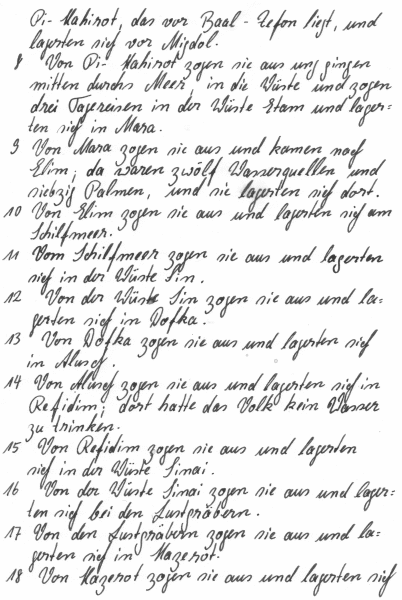 Pi-Hahirot, das vor Baal-Zefon liegt, und
lagerten sich vor Migdol.
8 Von Pi-Hahirot zogen sie aus und gingen
mitten durchs Meer, in die Wüste und zogen
drei Tagereisen in der Wüste Etam und lager=
ten sich in Mara.
9 Von Mara zogen sie aus und kamen nach
Elim; da waren zwölf Wasserquellen und
siebzig Palmen, und sie lagerten sich dort.
10 Von Elim zogen sie aus und lagerten sich am
Schilfmeer.
11 Vom Schilfmeer zogen sie aus und lagerten
sich in der Wüste Sin.
12 Von der Wüste Sin zogen sie aus und la=
gerten sich in Dofka.
13 Von Dofka zogen sie aus und lagerten sich
in Alusch.
14 Von Alusch zogen sie aus und lagerten sich in
Refidim; dort hatte das Volk kein Wasser
zu trinken.
15 Von Refidim zogen sie aus und lagerten
sich in der Wüste Sinai.
16 Von der Wüste Sinai zogen sie aus und lager=
ten sich bei den Lustgräbern.
17 Von den Lustgräbern zogen sie aus und la=
gerten sich in Hazerot.
18 Von Hazerot zogen sie aus und lagerten sich